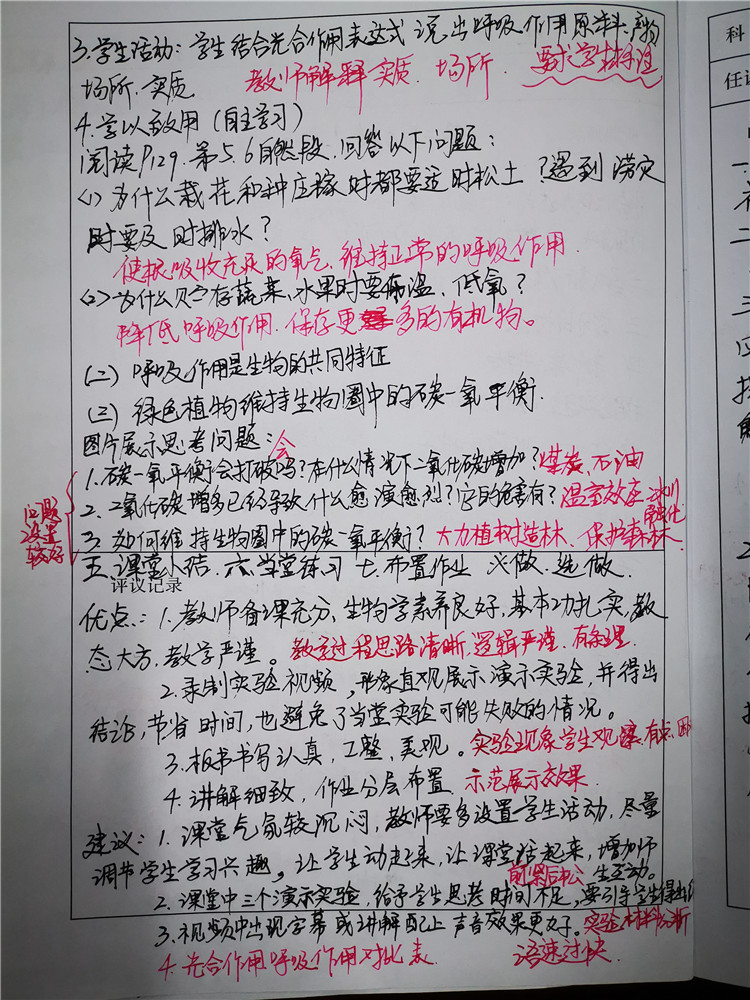 3.学生活动:学生结合光合作用表达式说出呼吸作用原料、产物
场所.实质 教师解释实质.场所. 要求学材标注
4.学以致用(自主学习)
阅读P129.第5.6自然段.回答以下问题:
(1)为什么栽花和种庄稼时都要适时松土?遇到涝灾
时要及时排水?
使根吸收充足的氧气.维持正常的呼吸作用.
(2)为什么贮存蔬菜、水果时要低温、低氧?
降低呼吸作用.保存更多的有机物。
(二)呼吸作用是生物的共同特征
(三)绿色植物维持生物圈中的碳一氧平衡.
图片展示思考问题: 会
1.碳一氧平衡会打破吗?在什么情况下二氧化碳增加?煤炭、石油
2.二氧化碳增多已经导致什么愈演愈烈?它的危害有?温室效应 冰川
融化
问题
设置
较好
3.如何维持生物圈中的碳一氧平衡?大力植树造林、保护森林
五.课堂小结.六.当堂练习 七.布置作业 必做.选做.
评议记录
优点:1.教师备课充分、生物学素养良好,基本功扎实,教
态大方.教学严谨。教学过程思路清晰.逻辑严谨.有条理.
2.录制实验视频,形象直观展示演示实验,并得出
结论,节省时间,也避免了当堂实验可能失败的情况。
3.板书书写认真,工整、美观。实验现象学生观察.有点
4.讲解细致,作业分层布置. 示范展示效果.
建议:1.课堂气氛较沉闷,教师要多设置学生活动,尽量
调节学生学习兴趣,让学生动起来,让课堂活起来,增加师
生互动。
前紧后松
2.课堂中三个演示实验,给予学生思考时间不足,要引导学生得出
3.视频中出现字幕或讲解配上声音效果更好。实验材料分析
4.光合作用呼吸作用对比表. 语速过快.
科
任课